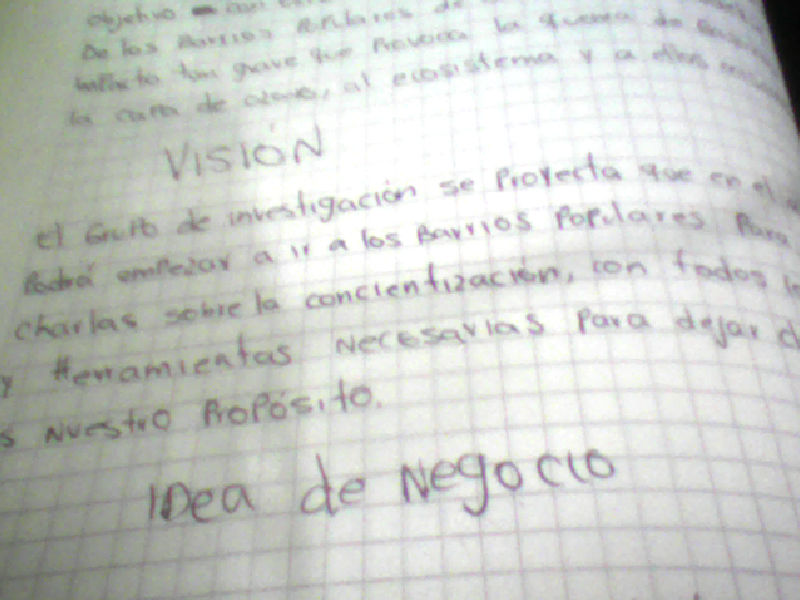 objetivo con
De los Barrios Populares de
tan grave que Provoca la quema de
la capa de ozono, al ecosistema y a ellos
VISIÓN
el Grupo de investigación se Proyecta que en el
Podrá empezar a ir a los Barrios Populares Para
charlas sobre la concientización, con todos
y Herramientas Necesarias Para dejar
s Nuestro Propósito.
IDea de Negocio